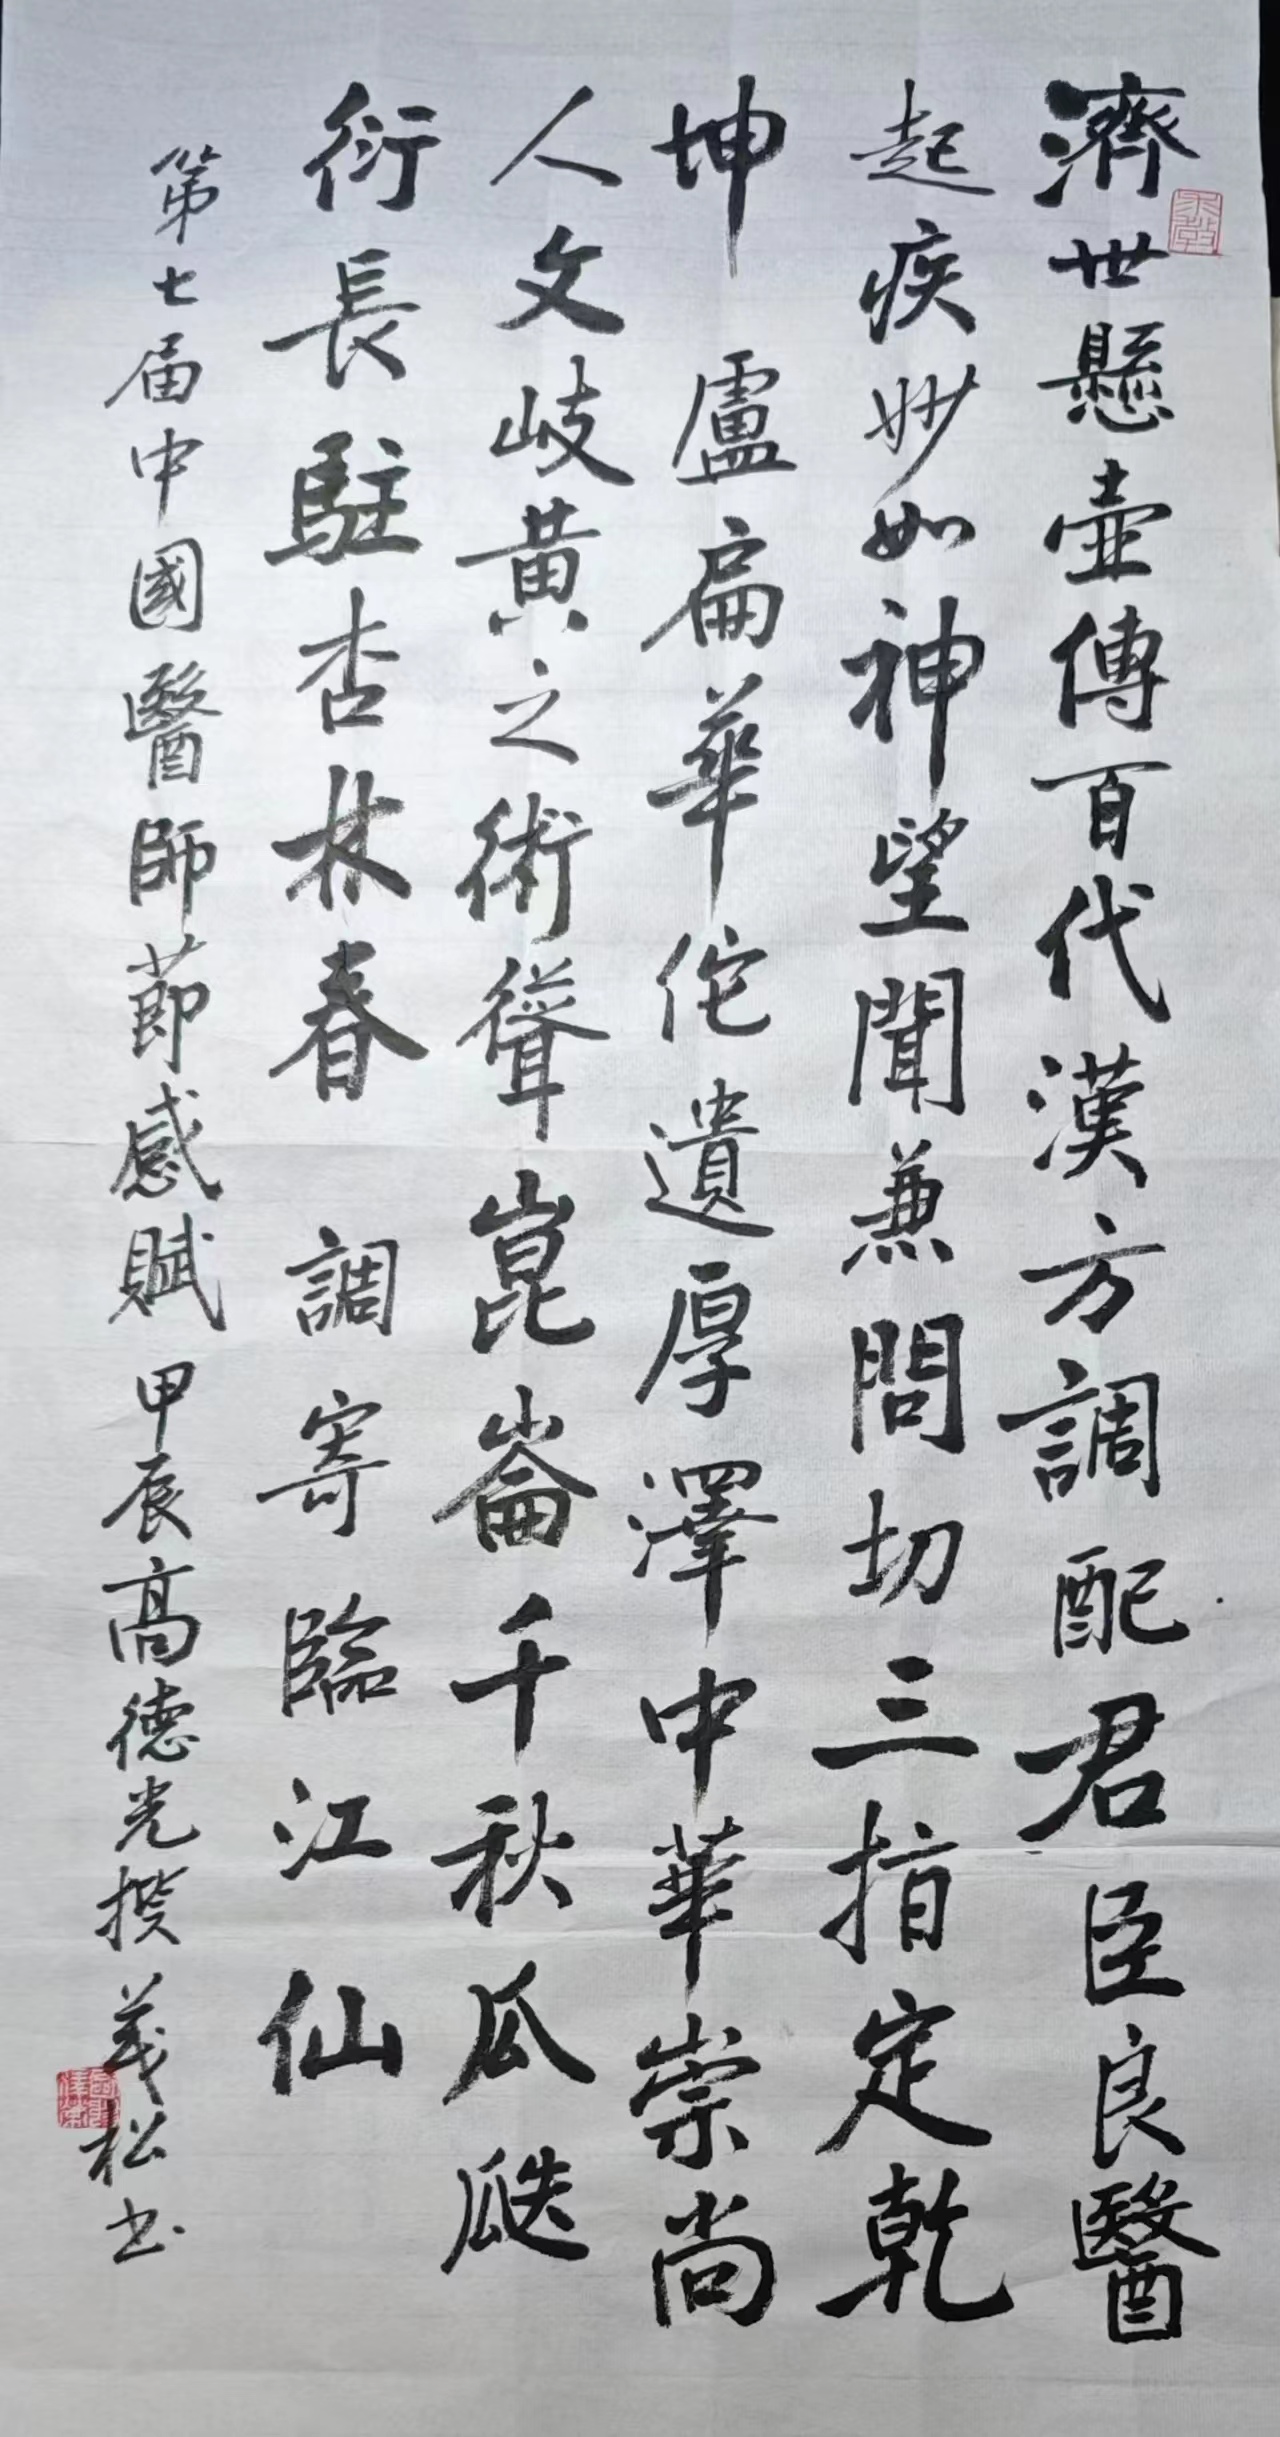 濟世懸壺傳百代漢方調配君臣良醫
起疾妙如神望聞兼問切三指定乾
坤 盧扁華佗遺厚澤中華崇尚
人文岐黃之術聳崑崙千秋瓜瓞
衍長駐杏林春 調寄臨江仙
第七届中國醫師節感賦甲辰高德光撰義松书